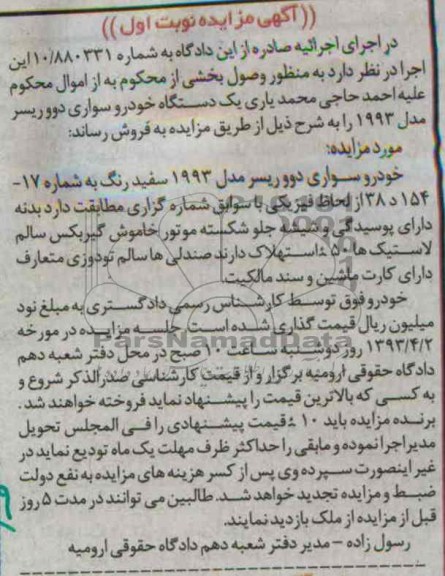 ((آگهی مزایده نوبت اول))
در اجرای اجرائیه صادره از این دادگاه به شماره ۱۰/۸۸۰۳۳۱ این
اجرا در نظر دارد به منظور وصول بخشی از محکوم به از اموال محکوم
علیه احمد حاجی محمد یاری یک دستگاه خودرو سواری دوو ریسر
مدل ۱۹۹۳ را به شرح ذیل از طریق مزایده به فروش رساند:
مورد مزایده:
خودرو سواری دوو ریسر مدل ۱۹۹۳ سفید رنگ به شماره ۱۷-
۱۵۴ د ۳۸ از لحاظ فیزیکی با سوابق شماره گزاری مطابقت دارد بدنه
دارای پوسیدگی و شیشه جلو شکسته موتور خاموش گیربکس سالم
لاستیک ها ۵۰٪ استهلاک دارند صندلی ها سالم تودوزی متعارف
دارای کارت ماشین و سند مالکیت.
خودرو فوق توسط کارشناس رسمی دادگستری به مبلغ نود
میلیون ریال قیمت گذاری شده است. جلسه مزایده در مورخه
۱۳۹۳/۴/۲ روز دوشنبه ساعت ۱۰ صبح در محل دفتر شعبه دهم
دادگاه حقوقی ارومیه برگزار و از قیمت کارشناسی صدرالذکر شروع و
به کسی که بالاترین قیمت را پیشنهاد نماید فروخته خواهند شد.
برنده مزایده باید ۱۰٪ قیمت پیشنهادی را فی المجلس تحویل
مدیر اجرا نموده و مابقی را حداکثر ظرف مهلت یک ماه تودیع نماید در
غیر اینصورت سپرده وی پس از کسر هزینه های مزایده به نفع دولت
ضبط و مزایده تجدید خواهد شد. طالبین می توانند در مدت ۵ روز
قبل از مزایده از ملک بازدید نمایند.
رسول زاده - مدیر دفتر شعبه دهم دادگاه حقوقی ارومیه
ParsNamadData